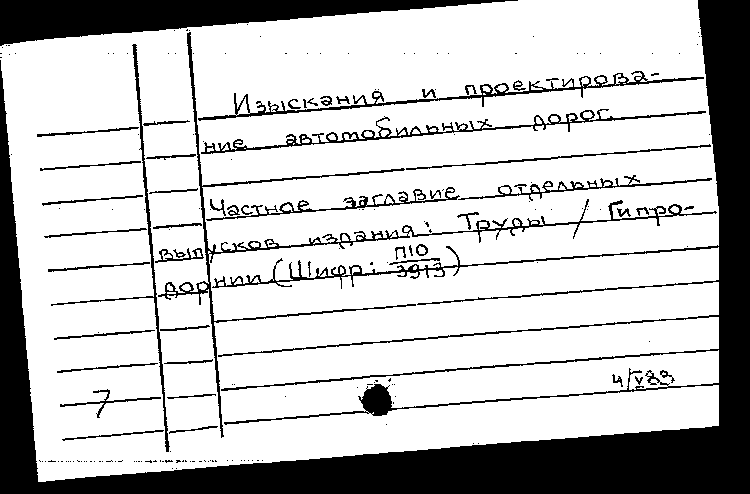 Изыскания и проектирова-
ние автомобильных дорог.
Частное заглавие отдельных
выпусков издания: Труды / Гипро-
дорнии (Шифр: П10/3913)
4/V83
7